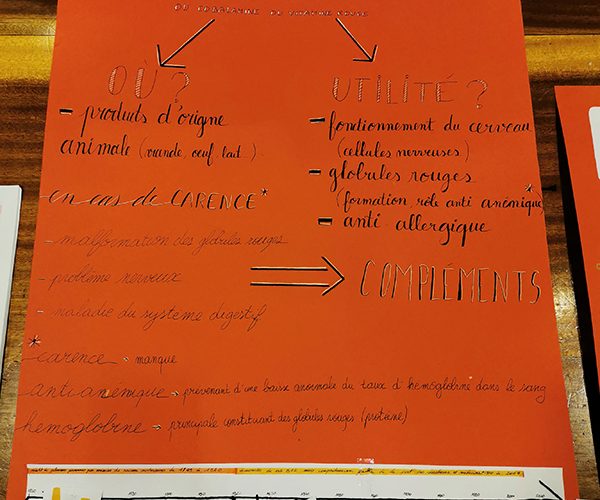 OU COBALAMINE OU VITAMINE ROUGE
OÙ ?
- produits d'origine
animale (viande, oeuf, lait)
UTILITÉ ?
- fonctionnement du cerveau
(cellules nerveuses)
- globules rouges
(formation, rôle anti anémique*)
- anti allergique
en cas de CARENCE*
- malformation des globules rouges
- problème nerveux
- maladie du système digestif
⇒ COMPLÉMENTS
*
carence - manque
antianémique - prévenant d'une baisse anormale du taux d'hémoglobine dans le sang
hémoglobine - principale constituant des globules rouges (protéine)